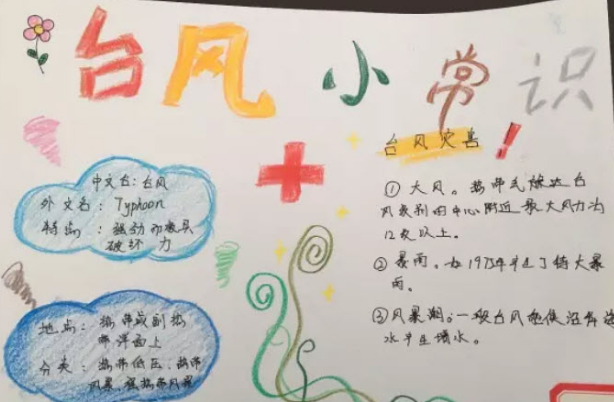 台风小常识
中文名：台风
外文名：Typhoon
特点：强劲而极具
破坏力
地点：热带或副热
带洋面上
分类：热带低压、热带
风暴、强热带风暴
台风灾害！
①大风。热带气旋达台
风级别的中心附近最大风力为
12级以上。
②暴雨。如1975年
特大暴
雨。
③风暴潮：一般台风能使沿岸
水产生增水。